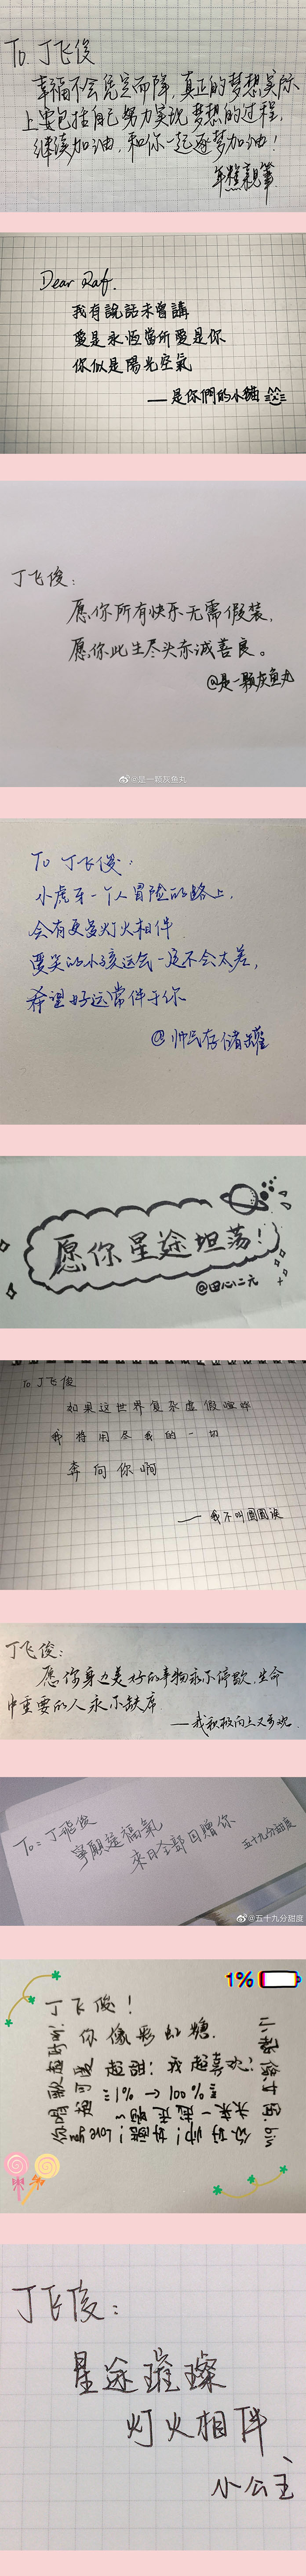 To. 丁飞俊
幸福不会凭空而降,真正的梦想实际
上要包括自己努力实现梦想的过程,
继续加油,和你一起逐梦加油!
Dear Raf.
我有說話未曾講
愛是永恆當所愛是你
你似是陽光空氣
——是你們的小貓
丁飞俊:
愿你所有快乐无需假装,
愿你此生尽头赤诚善良。
@是一颗灰鱼丸
@是一颗灰鱼丸
To 丁飞俊:
小虎牙一个人冒险的路上,
会有更多灯火相伴
爱笑的小孩运气一定不会太差,
希望好运常伴于你
@帅气存储罐
愿你星途坦荡!
@田心二元
To 丁飞俊
如果这世界复杂虚假喧哗
我将用尽我的一切
奔向你啊
——我不叫圆圆诶
丁飞俊:
愿你身边美好的事物永不停歇,生命
中重要的人永不缺席
——我积极向上又喜欢
To: 丁飛俊
寧願這福氣
來日全部回贈你
五十九分甜度
@五十九分甜度
1%
丁飞俊!
你像彩虹糖.
超甜!我超喜欢!
1% → 100%
未来一起走啊~
你好vip! 好酷! Love you
你唱歌超好听!
超可爱
丁飞俊:
星途璀璨
灯火相伴
小公主